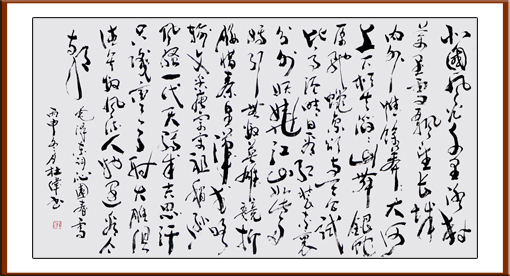 北國風光千里冰封
萬里雪飄望長城
內外惟餘莽莽大河
上下頓失滔滔山舞銀蛇
原馳蠟象欲與天公試
比高須晴日看紅裝素裹
分外妖嬈江山如此多
嬌引無數英雄競折
腰惜秦皇漢武略
輸文采唐宗宋祖稍遜
風騷一代天驕成吉思汗
只識彎弓射大雕俱
往矣數風流人物還看今
朝
毛澤東詞沁園春雪
丙申冬月杜偉書